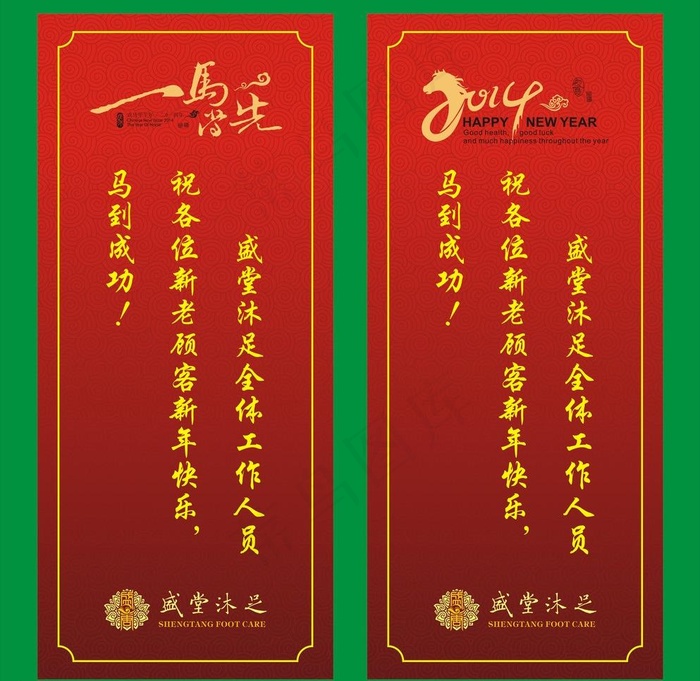 一马当先
盛堂沐足全体工作人员
祝各位新老顾客新年快乐，
马到成功！
盛堂沐足
SHENGTANG FOOT CARE
2014
HAPPY NEW YEAR
Good health, good luck
and much happiness throughout the year
盛堂沐足全体工作人员
祝各位新老顾客新年快乐，
马到成功！
盛堂沐足
SHENGTANG FOOT CARE